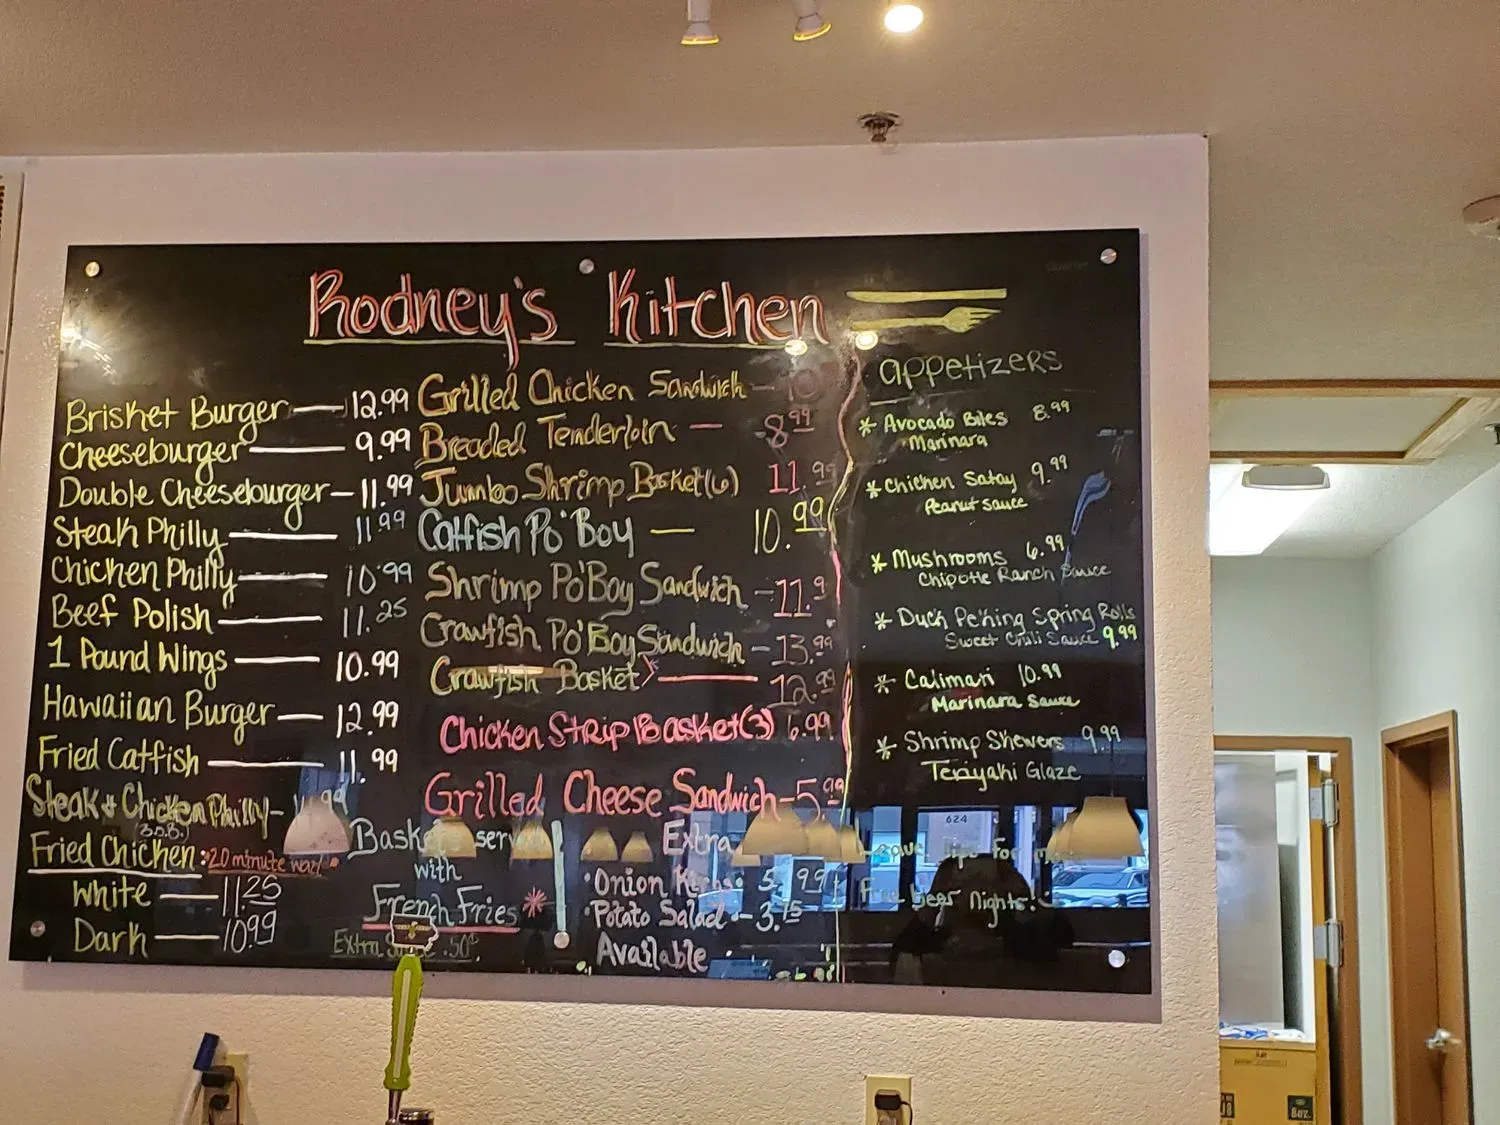 Rodney's Kitchen
Brisket Burger 12.99
Cheeseburger 9.99
Double Cheeseburger 11.99
Steak Philly 11.99
Chicken Philly 10.99
Beef Polish 11.25
1 Pound Wings 10.99
Hawaiian Burger 12.99
Fried Catfish 11.99
Steak & Chicken Philly
Fried Chicken 20 minute wait
White 11.25
Dark 10.99
Grilled Chicken Sandwich - 10
Breaded Tenderloin - 8.99
Jumbo Shrimp Basket (6) 11.99
Catfish Po'Boy - 10.99
Shrimp Po'Boy Sandwich - 11.9
Crawfish Po'Boy Sandwich - 13.99
Crawfish Basket 12.99
Chicken Strip Basket (3) 6.99
Grilled Cheese Sandwich - 5.99
Baskets served
with
French Fries *
Extra .50¢
Extra
• Onion 5.99
• Potato Salad - 3.75
Available
appetizers
* Avocado Bites 8.99
Marinara
* Chicken Satay 9.99
Peanut sauce
* Mushrooms 6.99
Chipotle Ranch Sauce
* Duck Peking Spring Rolls
Sweet Chili Sauce 9.99
* Calimari 10.99
Marinara Sauce
* Shrimp Skewers 9.99
Teriyaki Glaze
Tips For
beer Nights!
624
8oz.